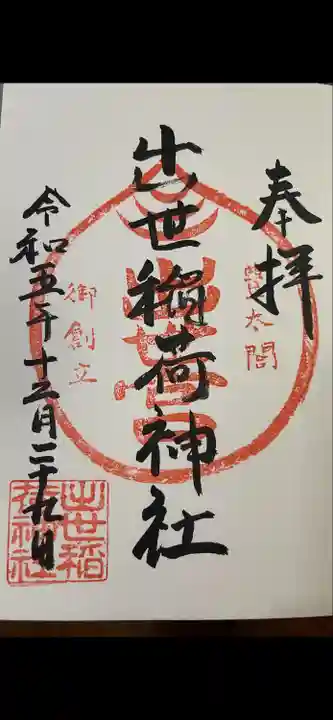 奉拝
豊太閤
出世稲荷神社
御創立
令和五年十二月二十九日
出世稲荷神社